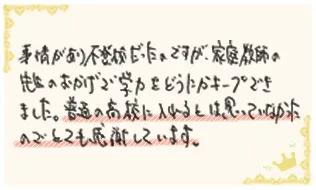 事情があり不登校だったのですが、家庭教師の
先生のおかげで学力をどうにかキープでき
ました。普通の高校に入れるとは思っていなかった
のでとても感謝しています。